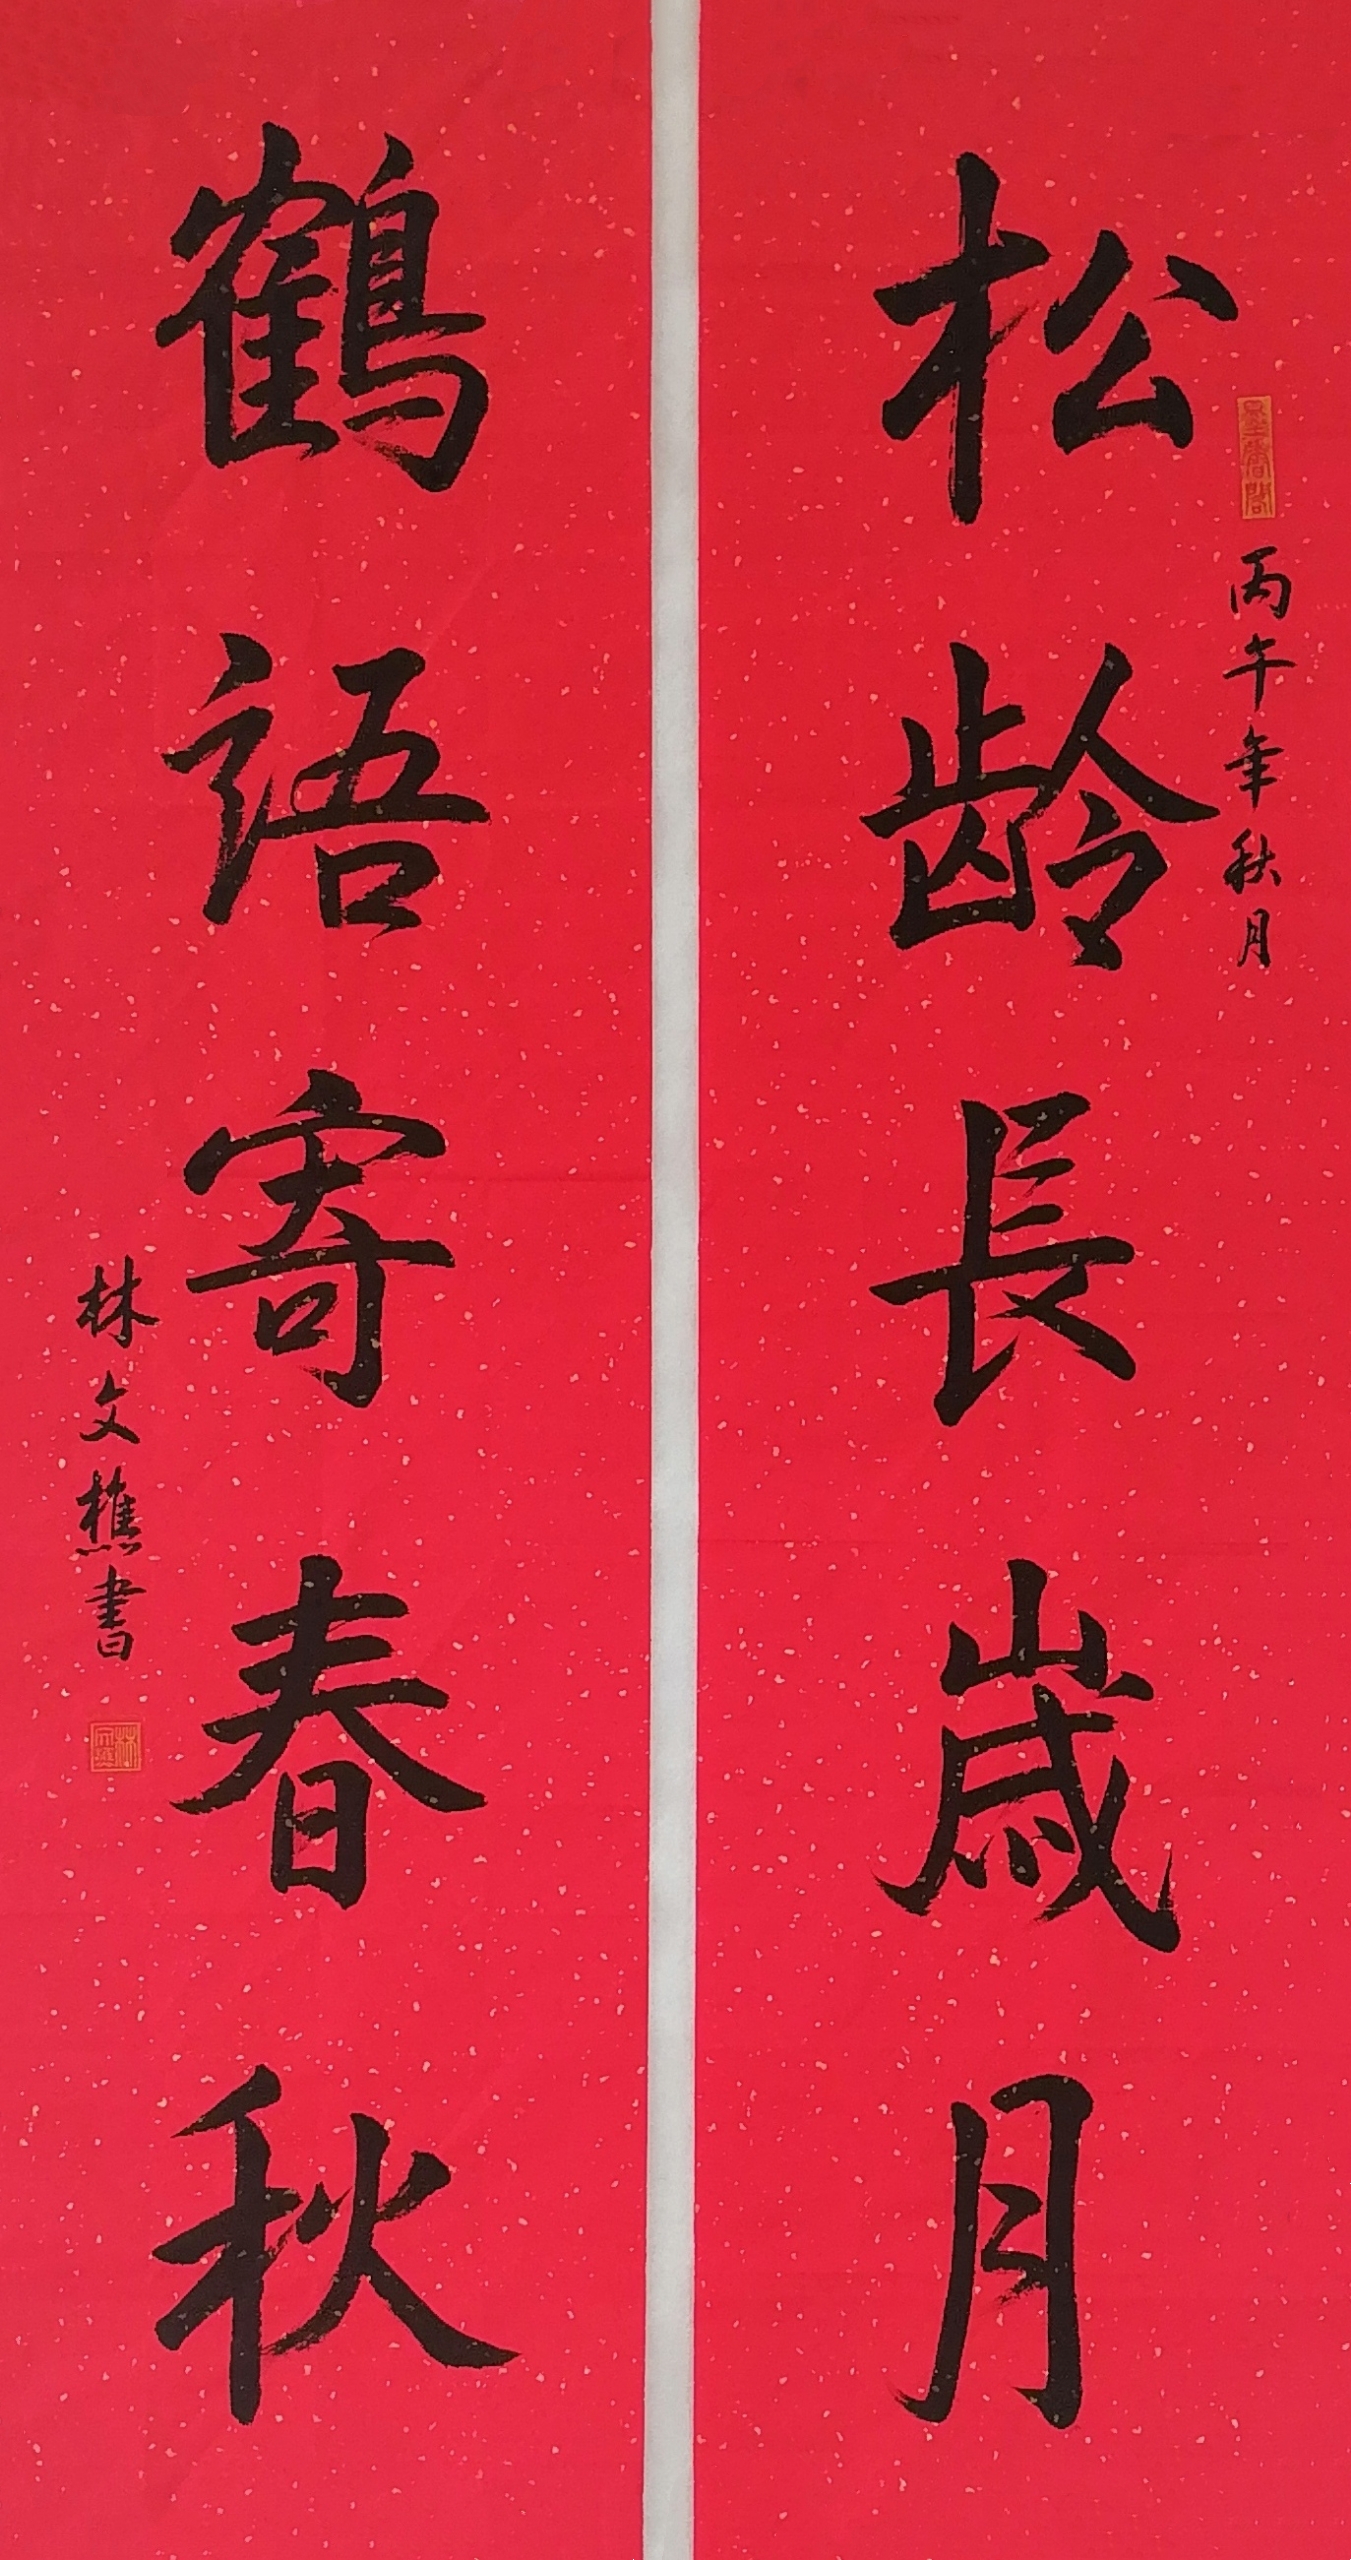 松龄長歲月
墨香閣
丙午年秋月
鶴語寄春秋
林文樵書